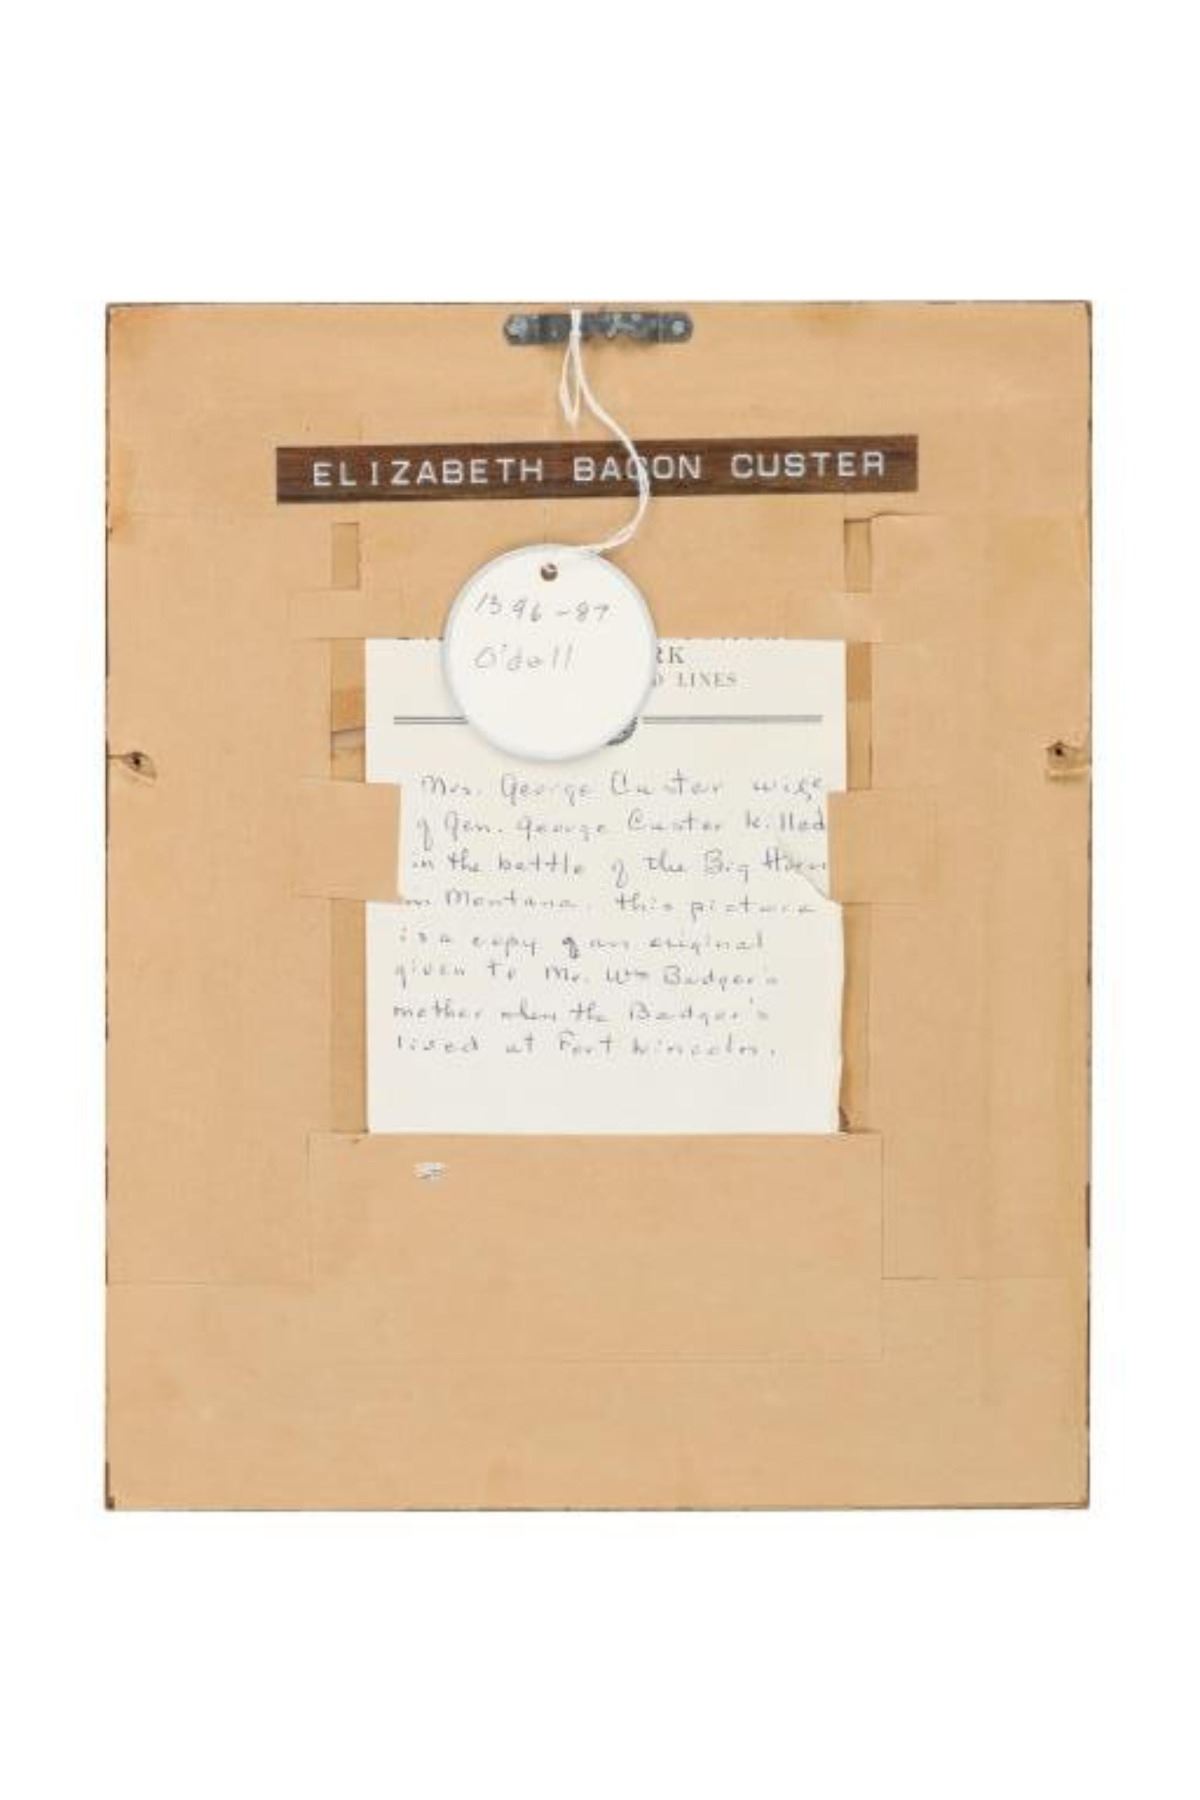 ELIZABETH BACON CUSTER
1396-87
O'dell
RK
LINES
Mrs. George Custer wife
of Gen. George Custer killed
in the battle of the Big Horn
in Montana. this picture
is a copy of an original
given to Mr. Wm Badger's
mother when the Badger's
lived at Fort Lincoln.